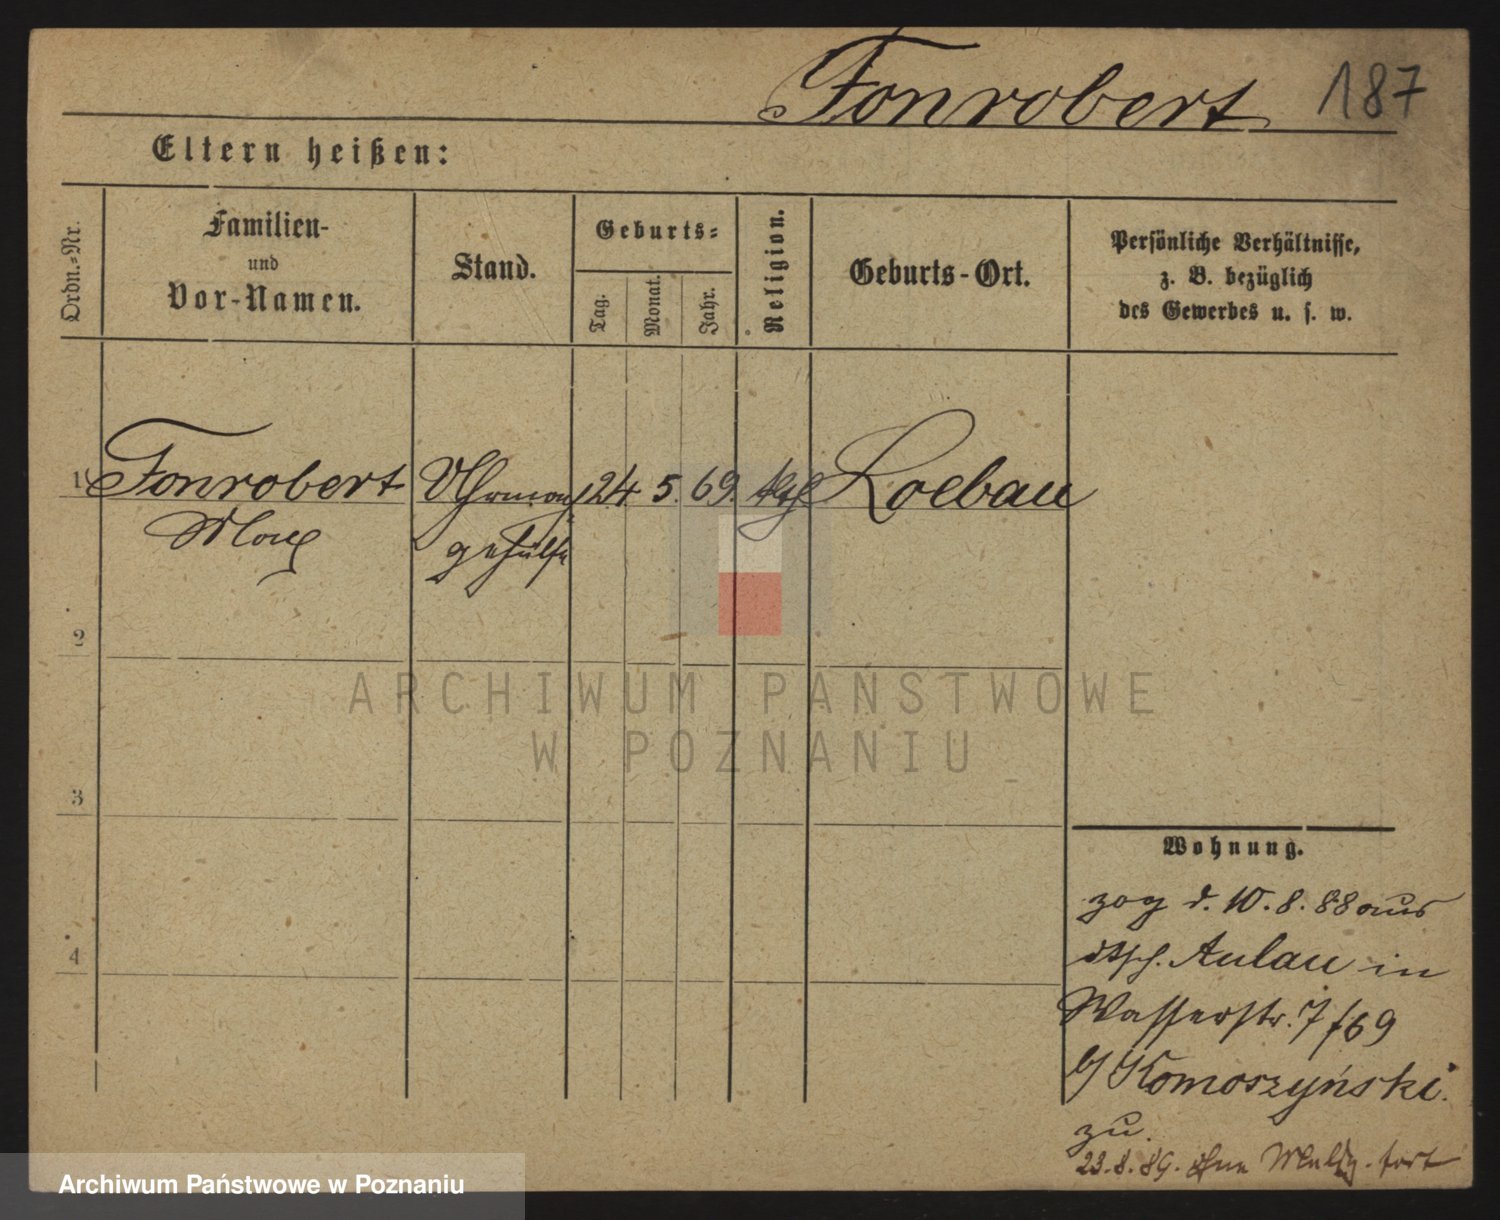 Fonrobert 187
Eltern heißen:
Ordn.=Nr.
Familien-
und
Vor-Namen.
Stand.
Geburts=
Tag.
Monat.
Jahr.
Religion.
Geburts-Ort.
Persönliche Verhältnisse,
z. B. bezüglich
des Gewerbes u. s. w.
1 Fonrobert Uhrmach 24 5. 69. ktl Loebau
Max gehülfe
2
3
4
Wohnung.
zog d. 10. 8. 88 aus
dtsch. Aulau in
Wasserstr. 7/69
b/ Komoszyński.
zu.
23. 8. 89. ohne Meldg. fort
ARCHIWUM PAŃSTWOWE
W POZNANIU
Archiwum Państwowe w Poznaniu